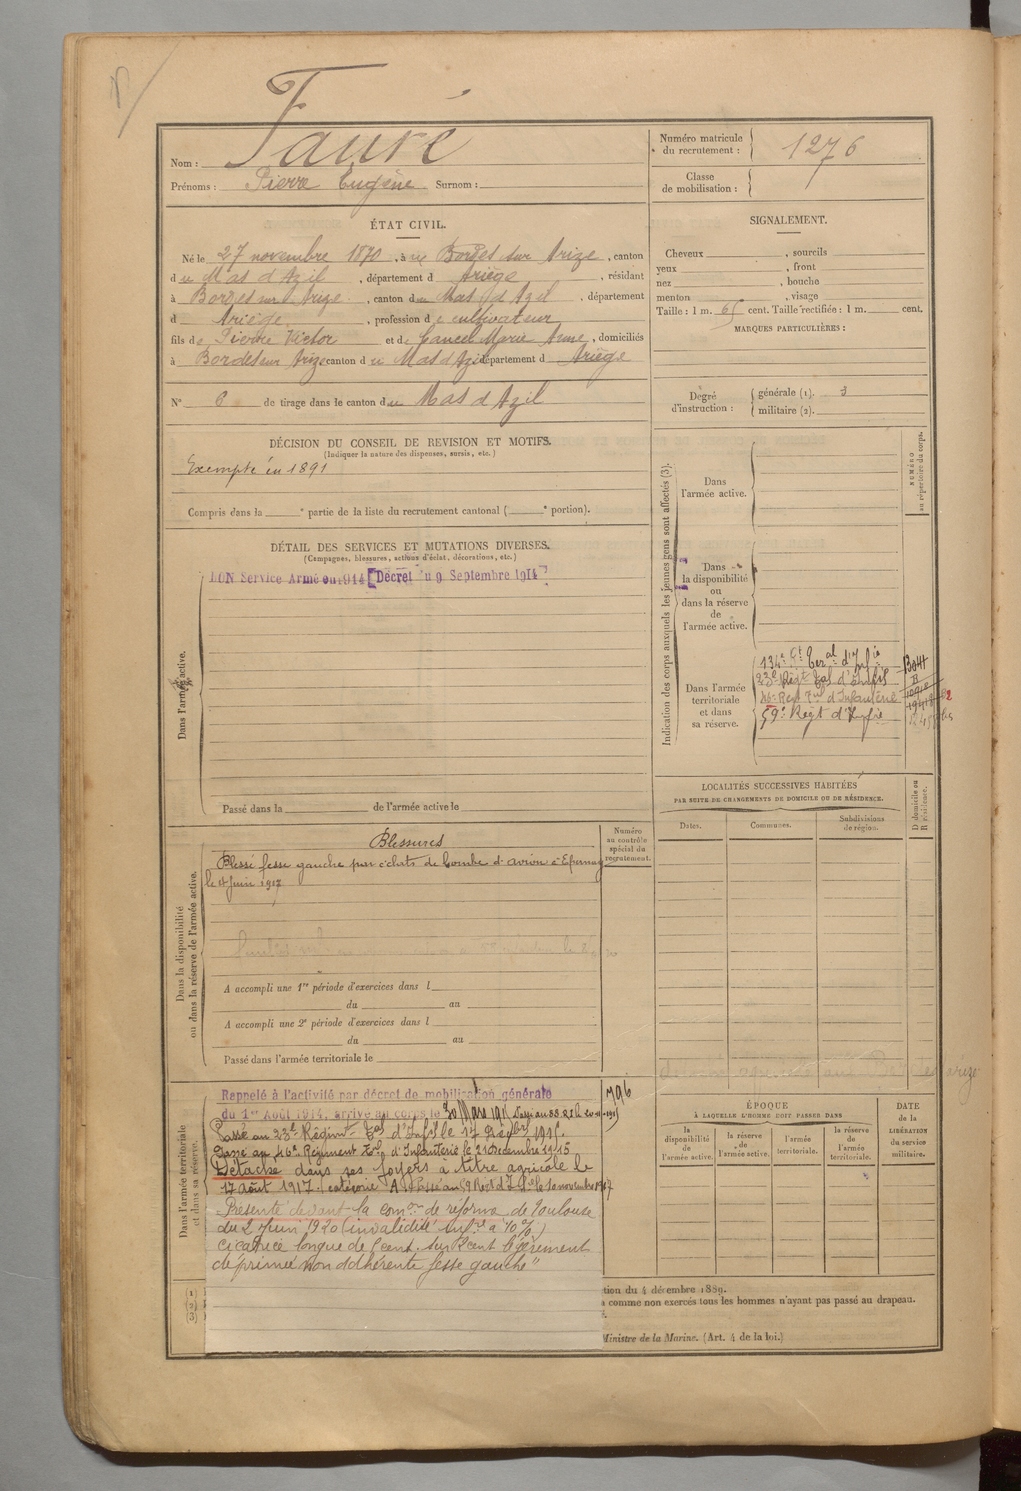 Nom : Fauré
Prénoms : Pierre Eugène Surnom :
Numéro matricule du recrutement : 1276
Classe de mobilisation :
ÉTAT CIVIL.
Né le 27 novembre 1870, à Bordes sur Arize, canton
du Mas d Azil, département d Ariège, résidant
à Bordes sur Arize, canton du Mas d Azil, département
d Ariège, profession de cultivateur
fils de Pierre Victor et de Cancel Marie Anne, domiciliés
à Bordes sur Arize canton du Mas d Azil département d Ariège
N° 6 de tirage dans le canton du Mas d Azil
SIGNALEMENT.
Cheveux , sourcils
yeux , front
nez , bouche
menton , visage
Taille : 1 m. 65 cent. Taille rectifiée : 1 m. cent.
MARQUES PARTICULIÈRES :
Degré d'instruction : générale (1). 3
militaire (2).
DÉCISION DU CONSEIL DE REVISION ET MOTIFS.
(Indiquer la nature des dispenses, sursis, etc.)
Exempté en 1891
Compris dans la e partie de la liste du recrutement cantonal ( e portion).
DÉTAIL DES SERVICES ET MUTATIONS DIVERSES.
(Campagnes, blessures, actions d'éclat, décorations, etc.)
BON Service Armé en 1914 [Décret du 9 Septembre 1914]
Dans l'armée active.
Passé dans la de l'armée active le
Indication des corps auxquels les jeunes gens sont affectés (3).
NUMÉRO au répertoire du corps.
Dans l'armée active.
Dans la disponibilité ou dans la réserve de l'armée active.
Dans l'armée territoriale et dans sa réserve.
134e Rt Teral d'Infie
23e Régt Tal d'Infie
46e Regt Tal d'Infanterie
59e Régt d'Infie
LOCALITÉS SUCCESSIVES HABITÉES
PAR SUITE DE CHANGEMENTS DE DOMICILE OU DE RÉSIDENCE.
Dates. Communes. Subdivisions de région. D domicile ou R résidence.
Numéro au contrôle spécial du recrutement.
Dans la disponibilité ou dans la réserve de l'armée active.
Blessures
Blessé fesse gauche par éclats de bombe d'avion à Epernay
le Juin 1917
A accompli une 1re période d'exercices dans l
du au
A accompli une 2e période d'exercices dans l
du au
Passé dans l'armée territoriale le
Dans l'armée territoriale et dans sa réserve.
796
Rappelé à l'activité par décret de mobilisation générale
du 1er Août 1914, arrivé au corps le 30 Mars 1915
Passé au 23e Régiment Tal d'Infie le 17 1915.
Passé au 46e Régiment Tal d'Infanterie le 21 Décembre 1915
Détaché dans ses foyers à titre agricole le
17 Août 1917. catégorie A Passé au 59 Regt d'Infie le 10 novembre 1917
Présenté devant la comon de réforme de Toulouse
du 2 Juin 1920 (invalidité infre à 10%)
cicatrice longue de cent. sur cent légèrement
déprimée non adhérente fesse gauche"
ÉPOQUE
À LAQUELLE L'HOMME DOIT PASSER DANS
la disponibilité de l'armée active. la réserve de l'armée active. l'armée territoriale. la réserve de l'armée territoriale.
DATE de la LIBÉRATION du service militaire.
(1)
(2)
(3)
tion du 4 décembre 1889.
comme non exercés tous les hommes n'ayant pas passé au drapeau.
Ministre de la Marine. (Art. 4 de la loi.)